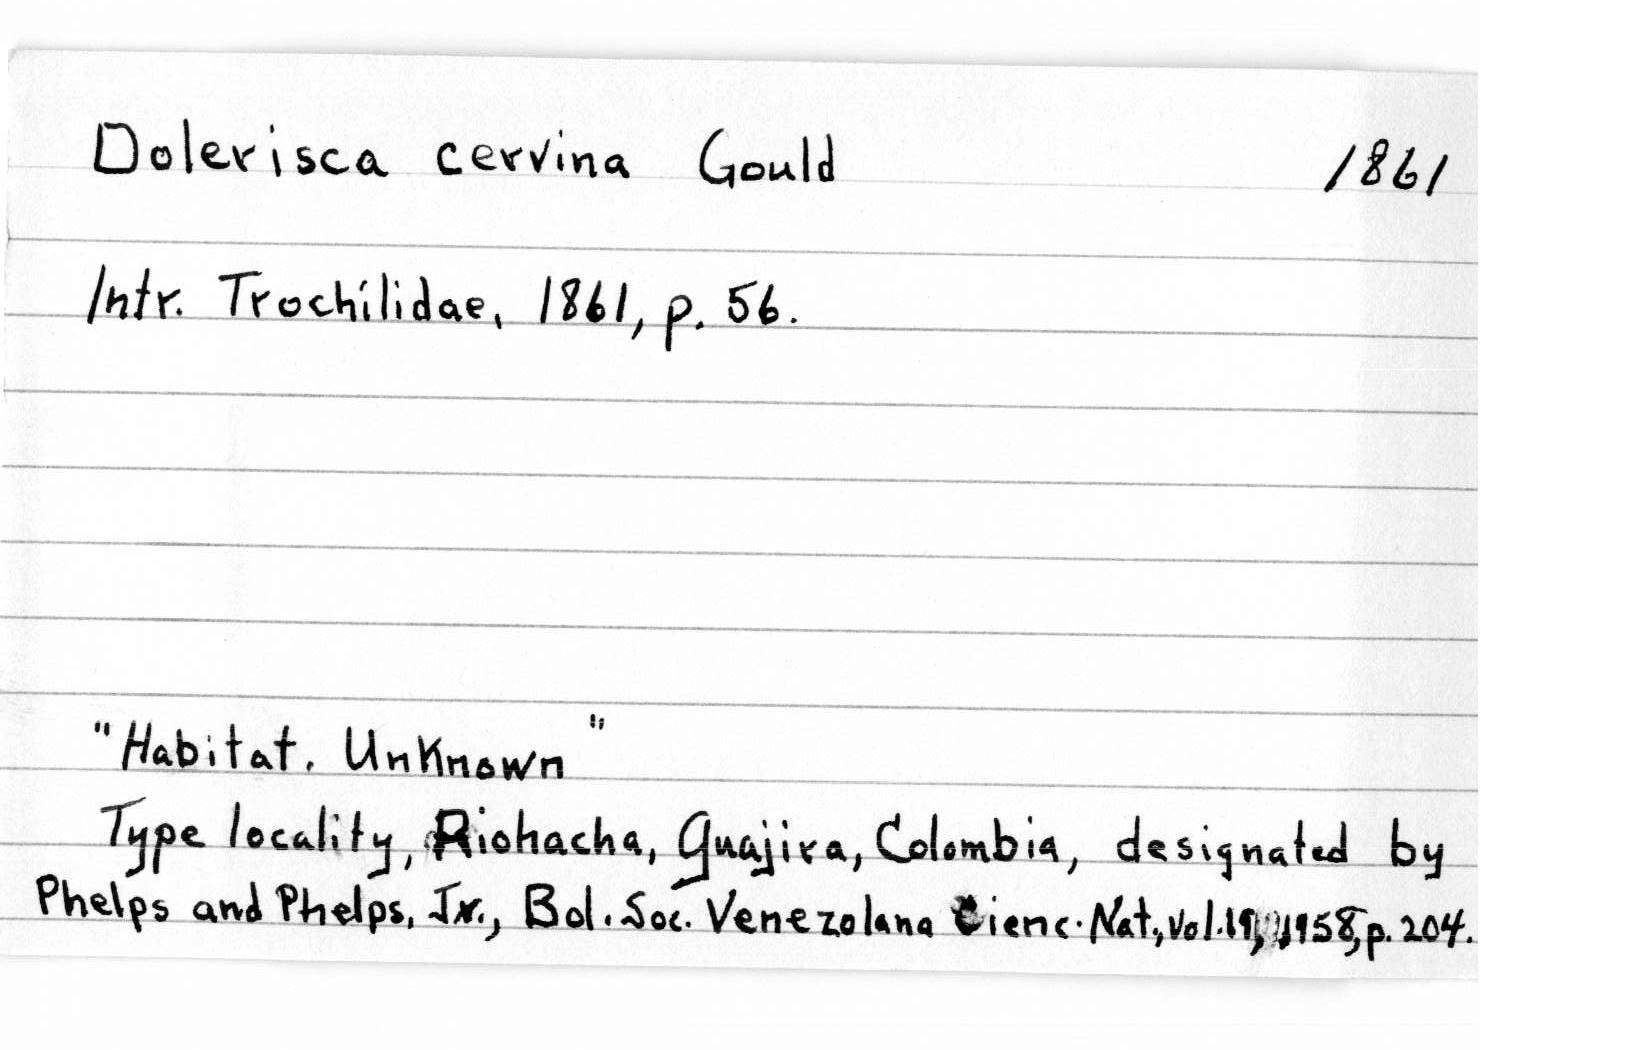 Dolerisca cervina Gould 1861
Intr. Trochilidae, 1861, p. 56.
"Habitat. Unknown"
Type locality, Riohacha, Guajira, Colombia, designated by
Phelps and Phelps, Jr., Bol. Soc. Venezolana Cienc. Nat., vol. 19, 1958, p. 204.